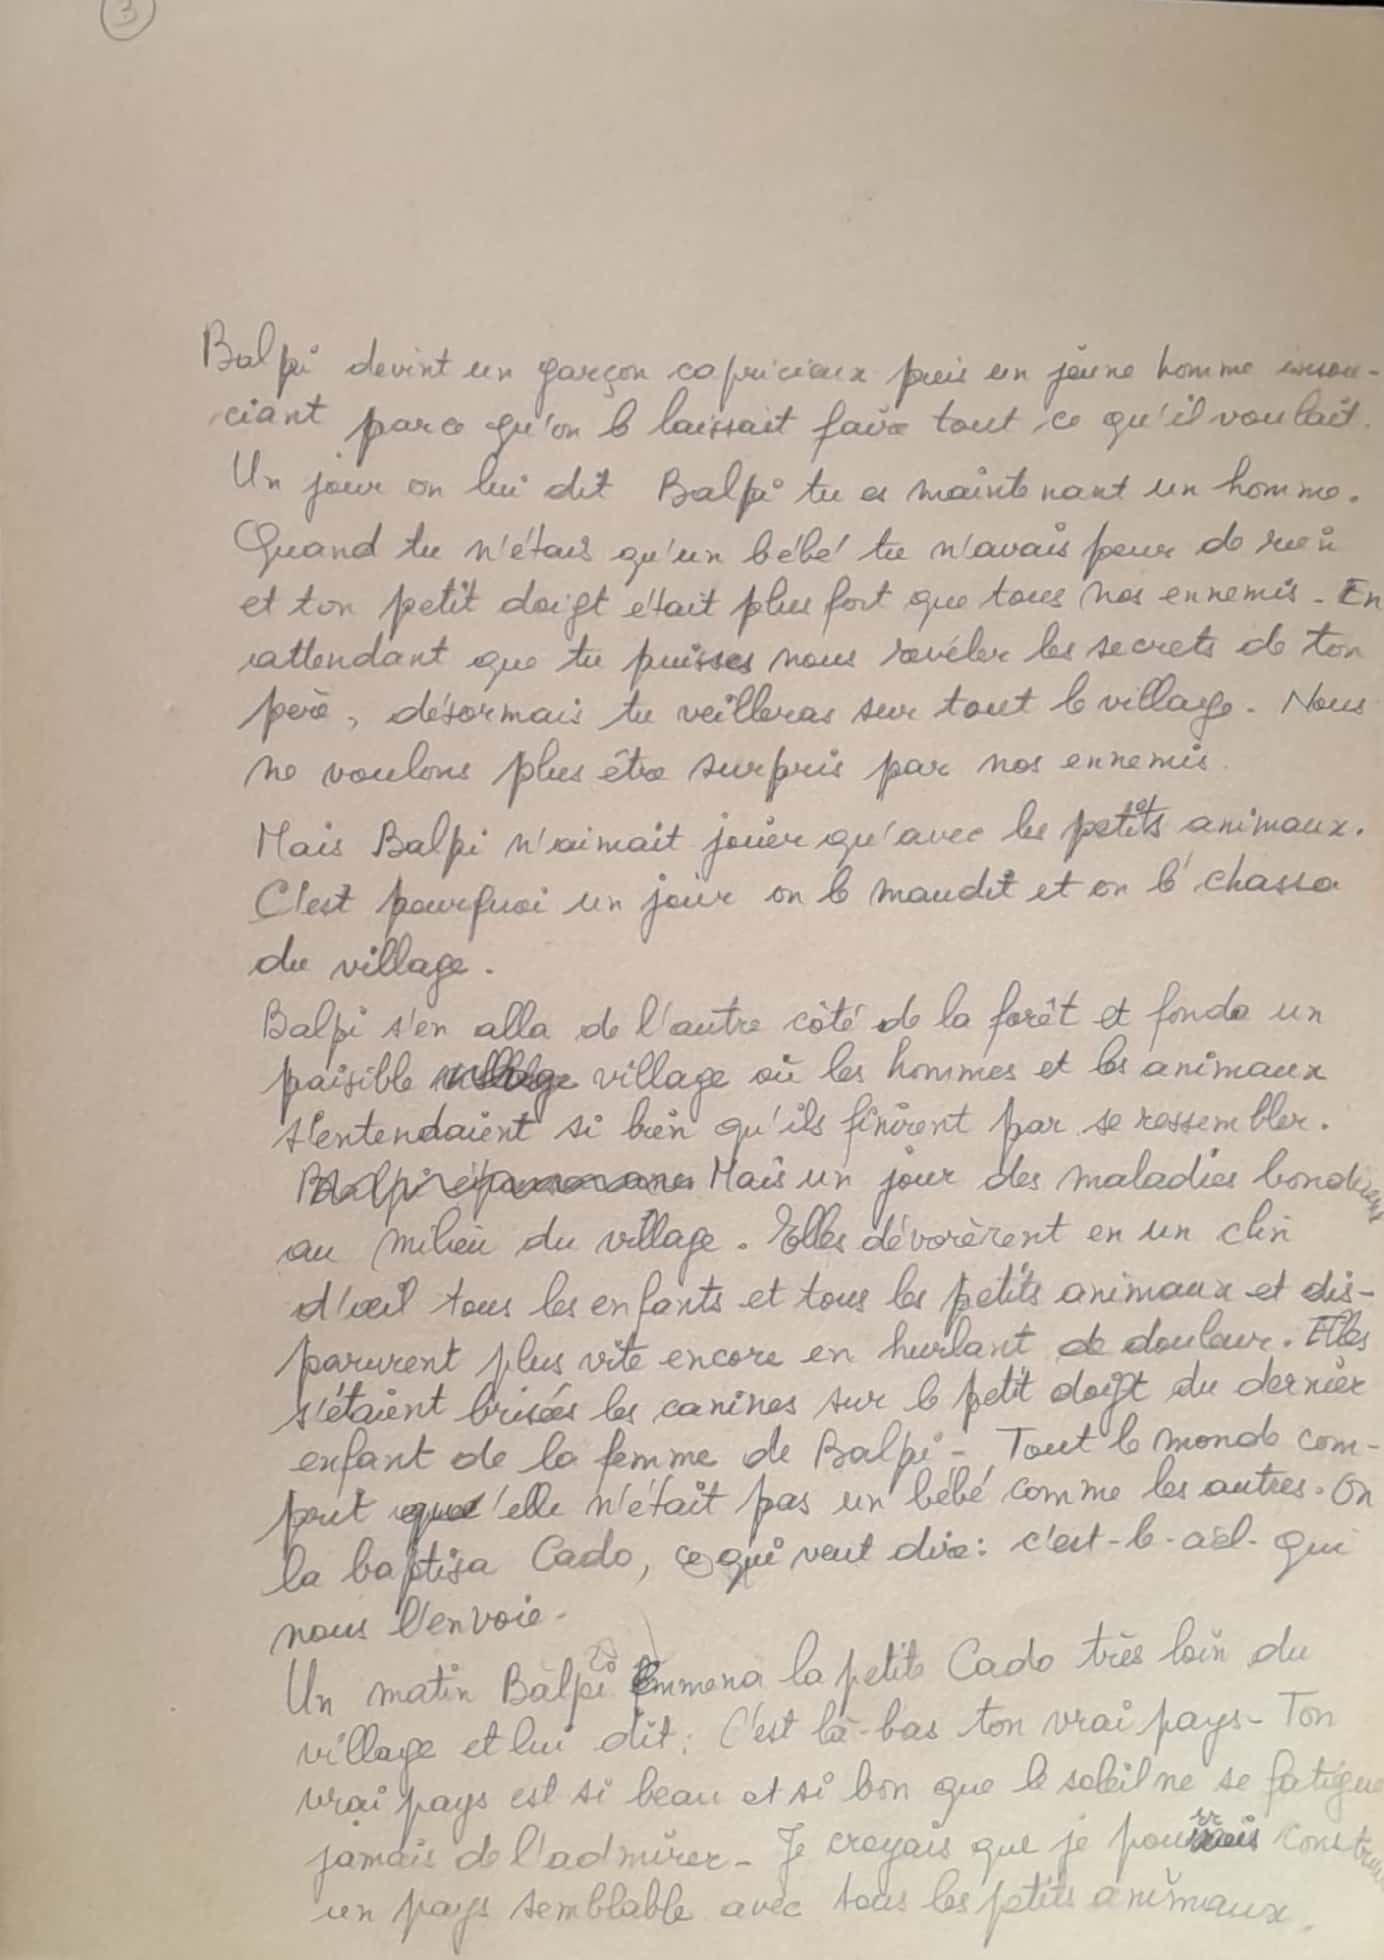 3
Balpi devint un garçon capricieux puis un jeune homme insou-
ciant parce qu'on le laissait faire tout ce qu'il voulait.
Un jour on lui dit Balpi tu es maintenant un homme.
Quand tu n'étais qu'un bébé tu n'avais peur de rien
et ton petit doigt était plus fort que tous nos ennemis. En
attendant que tu puisses nous révéler les secrets de ton
père, désormais tu veilleras sur tout le village. Nous
ne voulons plus être surpris par nos ennemis.
Mais Balpi n'aimait jouer qu'avec les petits animaux.
C'est pourquoi un jour on le maudit et on le chassa
du village.
Balpi s'en alla de l'autre côté de la forêt et fonda un
paisible village village où les hommes et les animaux
s'entendaient si bien qu'ils finirent par se ressembler.
Balpi Mais un jour des maladies bondirent
au milieu du village. Elles dévorèrent en un clin
d'œil tous les enfants et tous les petits animaux et dis-
parurent plus vite encore en hurlant de douleur. Elles
s'étaient brisées les canines sur le petit doigt du dernier
enfant de la femme de Balpi - Tout le monde com-
prit qu'elle n'était pas un bébé comme les autres. On
la baptisa Cado, ce qui veut dire : c'est-le-ciel-qui
nous l'envoie -
Un matin Balpi emmena la petite Cado très loin du
village et lui dit : C'est là-bas ton vrai pays - Ton
vrai pays est si beau et si bon que le soleil ne se fatigue
jamais de l'admirer - Je croyais que je pourrais construire
un pays semblable avec tous les petits animaux.